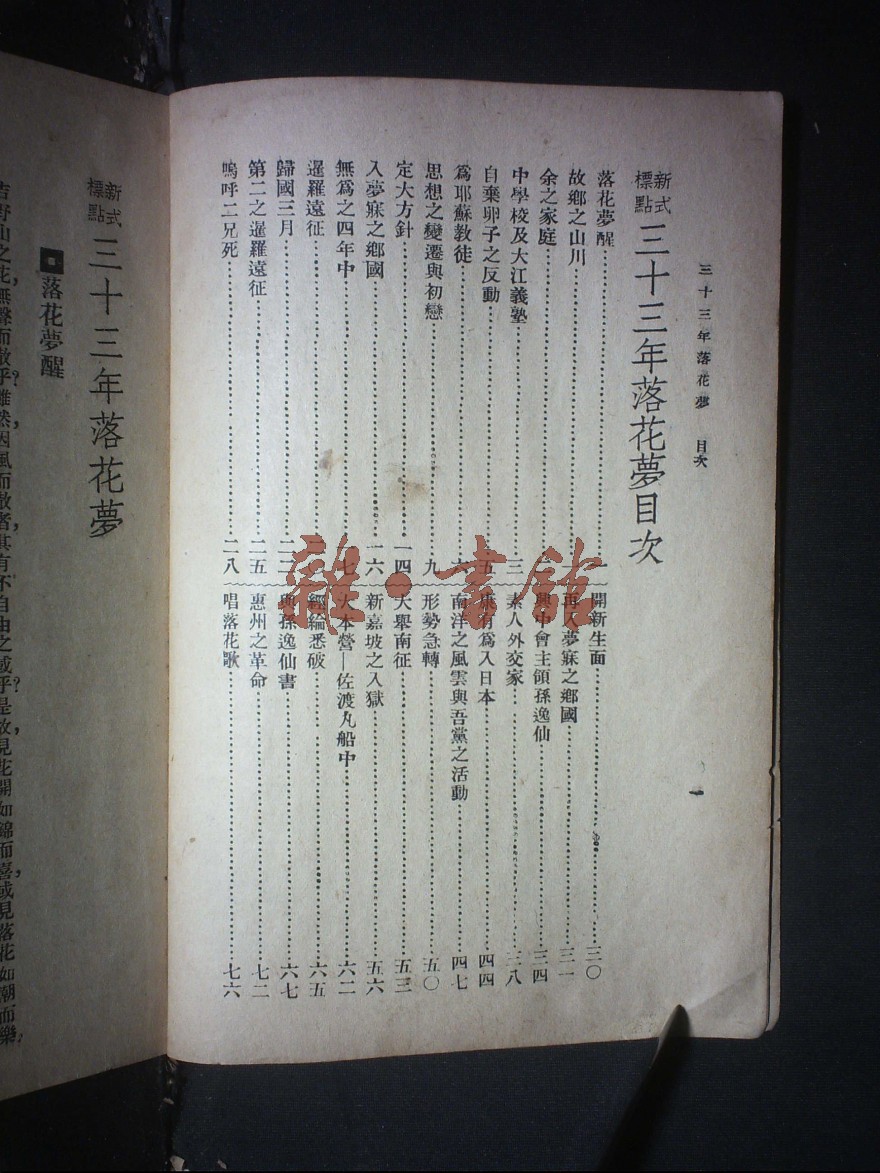 三十三年落花夢 目次
一
新式標點 三十三年落花夢目次
落花夢醒……一
故鄉之山川……
余之家庭……
中學校及大江義塾……三
自棄卵子之反動……五
爲耶蘇教徒……六
思想之變遷與初戀……九
定大方針……一四
入夢寐之鄉國……一六
無爲之四年中……七
暹羅遠征……
歸國三月……二二
第二之暹羅遠征……二五
嗚呼二兄死……二八
開新生面……三〇
再入夢寐之鄉國……三一
興中會主領孫逸仙……三四
素人外交家……三八
康有爲入日本……四四
南洋之風雲與吾黨之活動……四七
形勢急轉……五〇
大舉南征……五三
新嘉坡之入獄……五六
大本營—佐渡丸船中……六二
經綸悉破……六五
與孫逸仙書……六七
惠州之革命……七二
唱落花歌……七六
新式標點 三十三年落花夢
落花夢醒
吉野山之花，無聲而散乎？雖然，因風而散者，其有不自由之感乎？是故，見花開如錦而喜，或見落花如潮而樂；
雜·書館